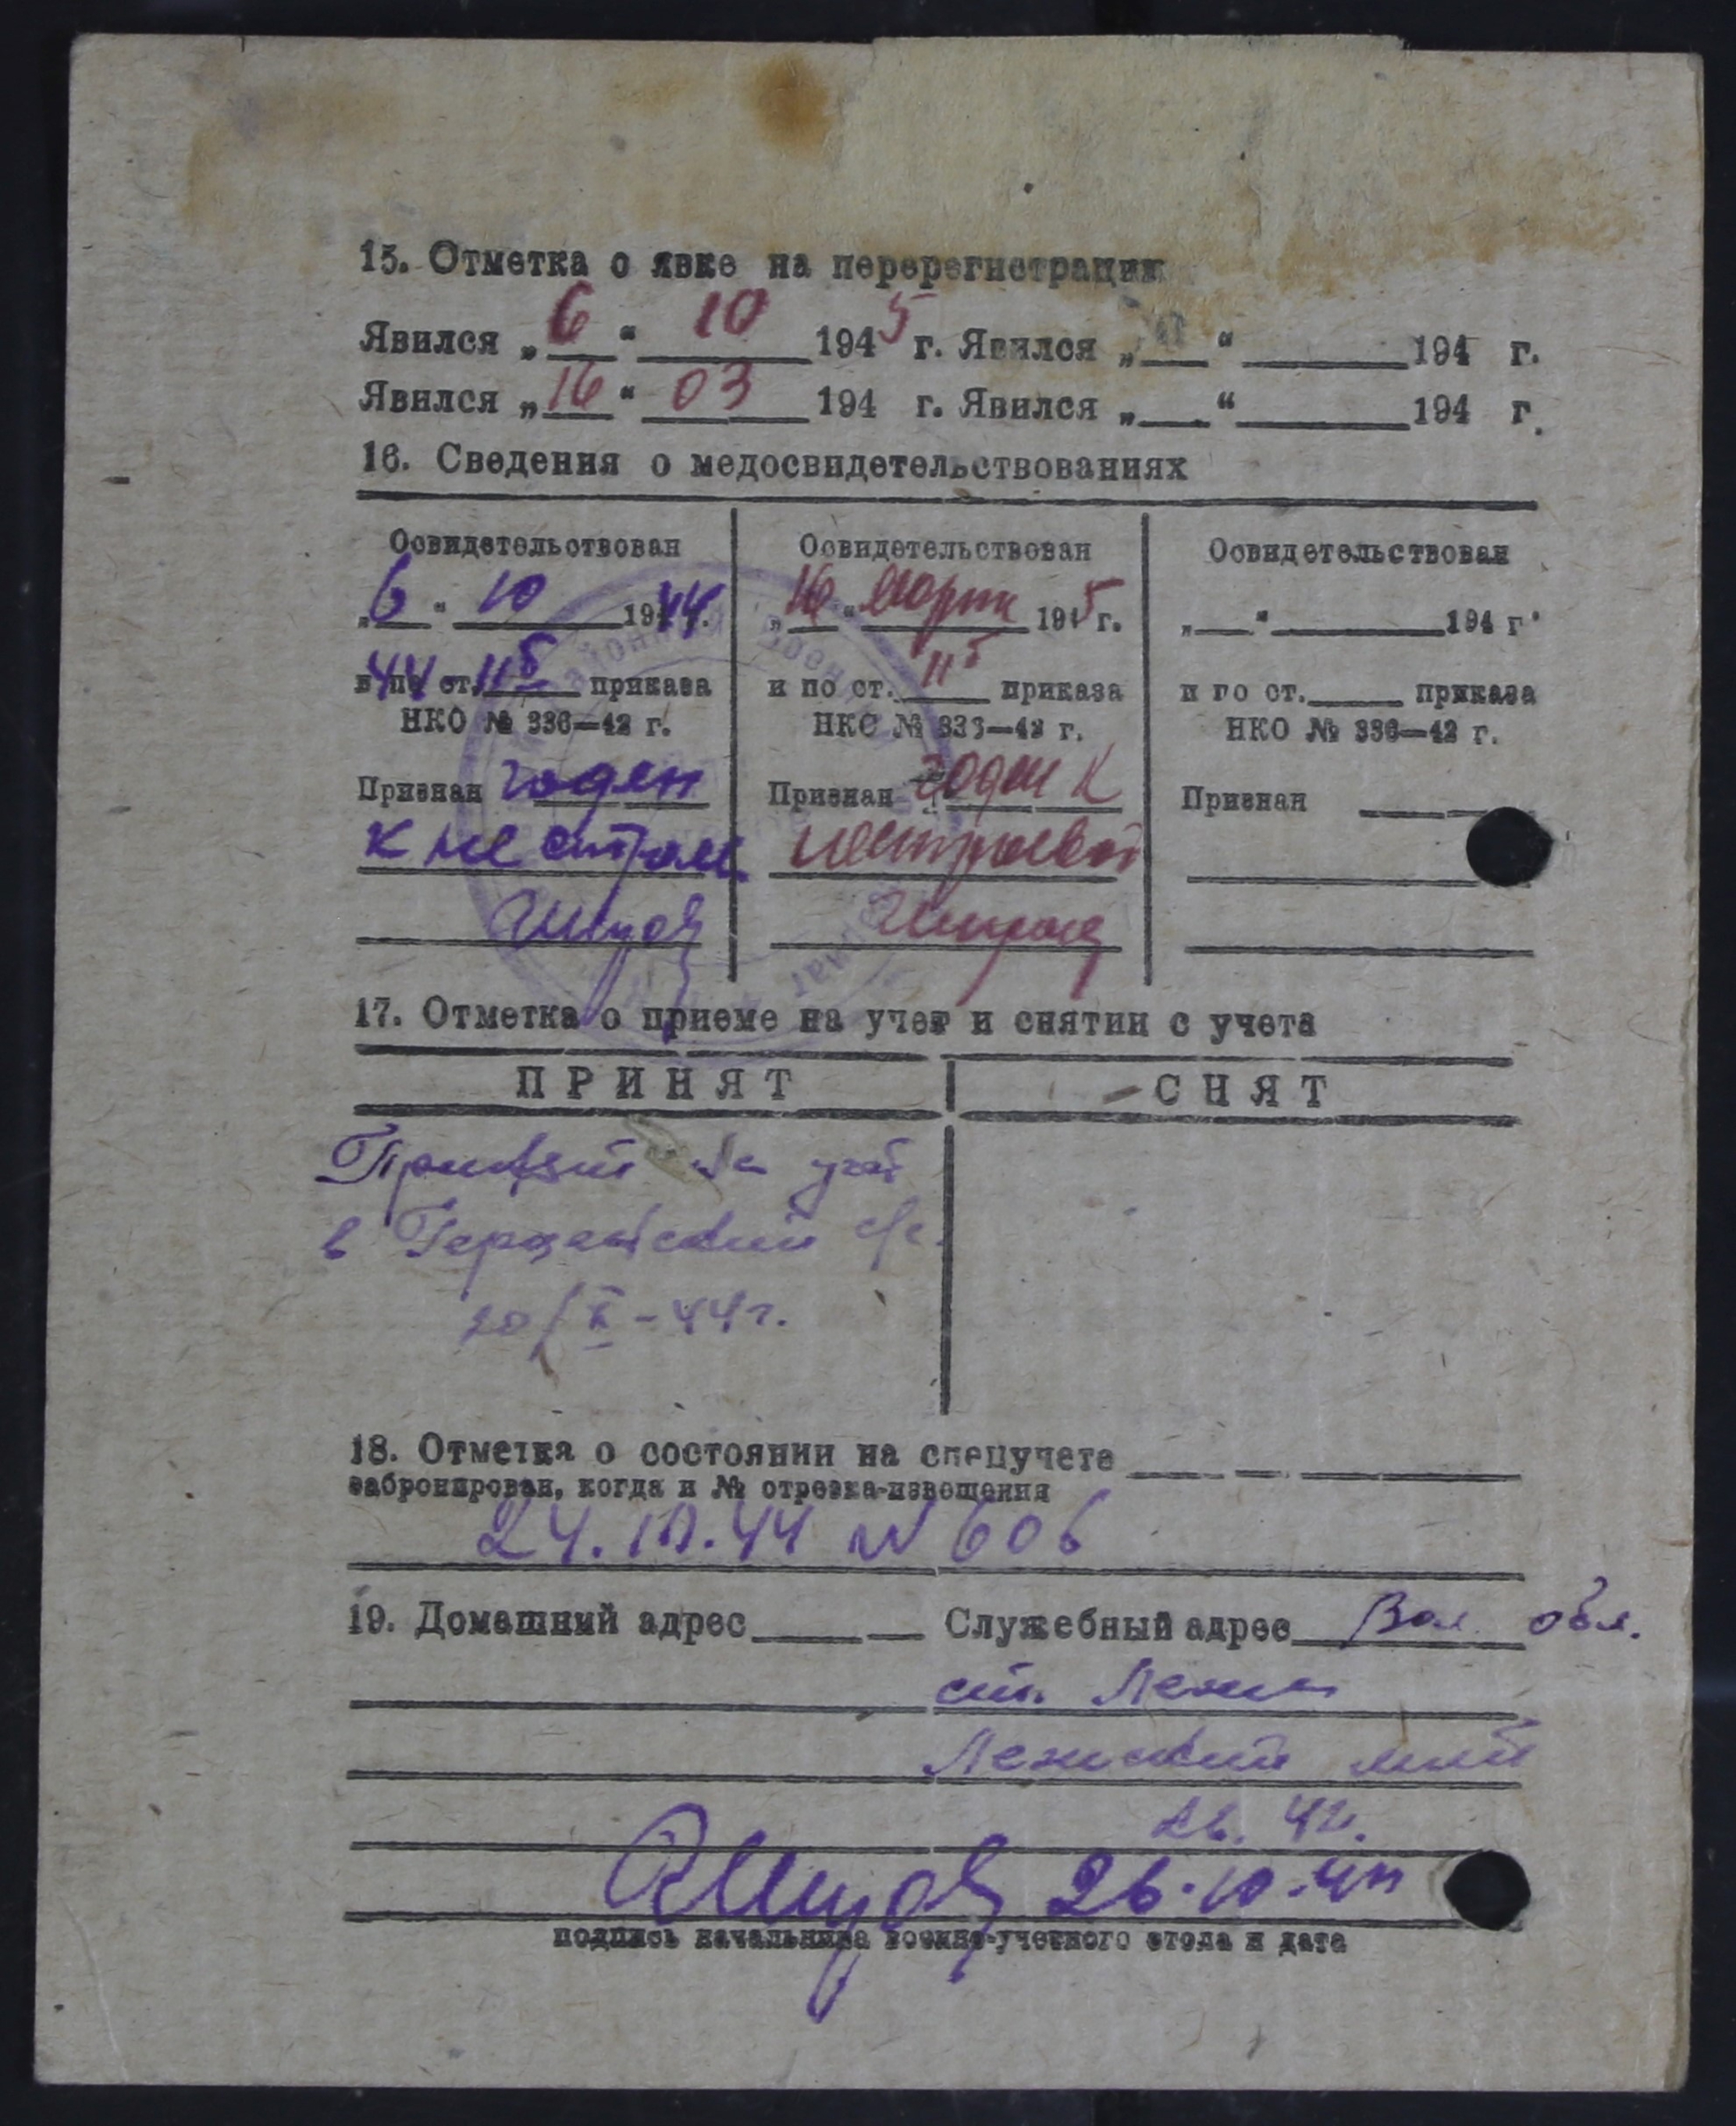 15. Отметка о явке на перерегистрации
Явился „6“ 10 1945 г. Явился „__“ ______ 194 г.
Явился „16“ 03 194 г. Явился „__“ ______ 194 г.
16. Сведения о медосвидетельствованиях
Освидетельствован
„6“ 10 1944 г.
и по ст. 11б приказа
НКО № 336—42 г.
Признан годен
к не строев.
Освидетельствован
„16“ марта 1945 г.
и по ст. 11б приказа
НКО № 336—42 г.
Признан годен к
нестроевой
Освидетельствован
„__“ ______ 194 г.
и по ст. ____ приказа
НКО № 336—42 г.
Признан
17. Отметка о приеме на учет и снятии с учета
ПРИНЯТ СНЯТ
Принят на учет
в с/с.
20/X-44г.
18. Отметка о состоянии на спецучете
забронирован, когда и № отрезка-извещения
24.10.44 N 606
19. Домашний адрес ____ Служебный адрес Вол. обл.
ст. Лежа
Лежский
26.10.44
подпись начальника военно-учетного стола и дата